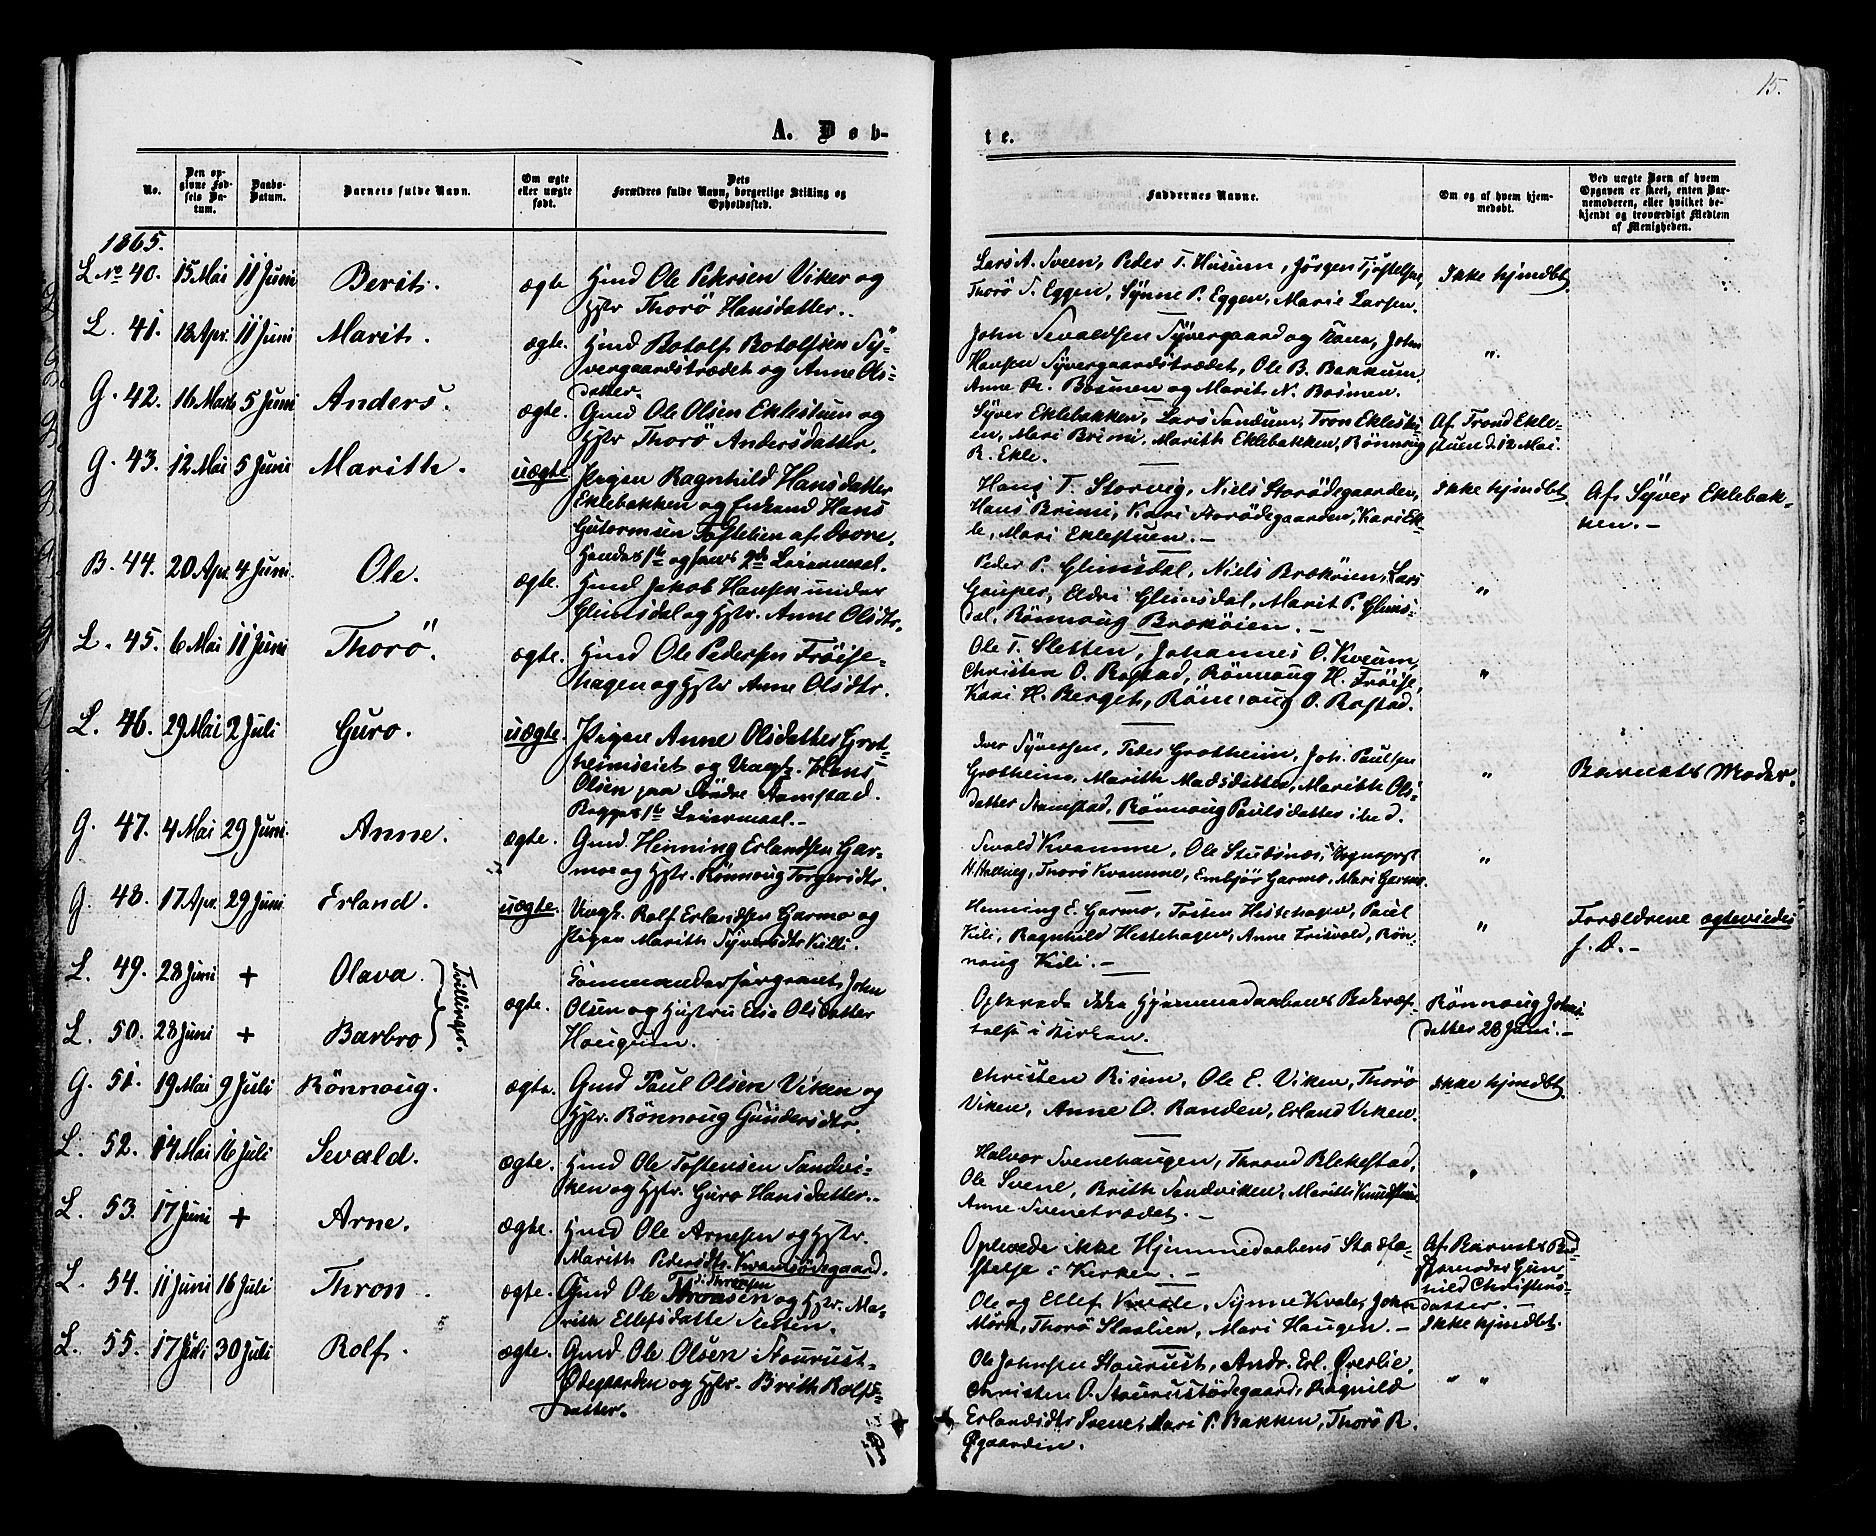 15.
A. Døb-
te.
No.
Den op-
givne Fød-
sels Da-
tum.
Daabs-
Datum.
Barnets fulde Navn.
Om ægte
eller uægte
født.
Dets
Forældres fulde Navn, borgerlige Stilling og
Opholdssted.
Faddernes Navne.
Om og af hvem hjem-
medøbt.
Ved uægte Børn af hvem
Opgaven er skeet, enten Bar-
nemoderen, eller hvilket be-
kjendt og troværdigt Medlem
af Menigheden.
1865.
L No 40. 15 Mai 11 Juni Berit. ægte Hmd Ole Pedersen Viker og
Hstr Thorö Hansdatter.
Lars A. Sveen, Peder T. Husum, Jørgen
Thorö S. Eggen, Synne P. Eggen, Marie Larsen.
Ikke hjmdbt.
L. 41. 18 Apr. 11 Juni Marit. ægte. Hmd Botolf Botolfsen Sy-
vergaardstrædet og Anne Ols-
datter.
John Sevaldsen Syvergaard og Kone, John
Hansen Syvergaardstrædet, Ole B. Bakkum,
Anne Bosmen og Marit N. Bosmen.
"
G. 42. 16 Marts 5 Juni Anders. ægte. Gmd Ole Olsen Eklestuen og
Hstr Thorö Andersdatter.
Syver Eklebakken, Lars Sandum, Tron Eklestu-
en, Mari Brimi, Marith Eklebakken, Rönnoug
R. Ekle.
Af Trond Ekle-
stuen d. 12 Mai.
G. 43. 12 Mai 5 Juni Marith. uægte Pigen Ragnhild Hansdatter
Eklebakken og Enkemd Hans
Guttormsen Toftelien af Dovre.
Hendes 1ste og hans 2det Leiermaal.
Hans T. Storvig, Niels Storödegaarden,
Hans Brimi, Kari Storödegaarden, Kari Ek-
le, Mari Eklestuen.-
Ikke hjmdbt.
Af Syver Eklebak-
ken.-
B. 44. 20 Apr. 4 Juni. Ole. ægte. Hmd Jakob Hansen under
Glimsdal og Hstr. Anne Olsdtr.
Peder P. Glimsdal, Niels Bræköien, Lars
Gauper, Eldri Glimsdal, Marit P. Glims-
dal, Rönnoug Bræköien.-
"
L. 45. 6 Mai 11 Juni Thorö. ægte. Hmd Ole Pedersen Fröise-
hagen og Hstr Anne Olsdtr.
Ole T. Sletten, Johannes O. Kveum,
Christen O. Rostad, Rönnoug H. Fröise,
Kari H. Berget, Rönnoug O. Rostad.
"
L. 46. 29 Mai 2 Juli Guro. uægte. Pigen Anne Olsdatter Grot-
heimseiet og Ungk. Hans
Olsen paa Söndre Aamstad.
Begges 1ste Leiermaal.-
Iver Syversen, Peder Grotheim, Joh. Paulsen
Grotheim, Marith Madsdatter, Marith Ols-
datter Aamstad, Rönnoug Paulsdatter ibid.
"
Barnets Moder.
G. 47. 4 Mai 29 Juni. Anne. ægte. Gmd. Henning Erlandsen Gar-
moe og Hstr. Rönnoug Torgersdtr.
Sevald Kvamme, Ole Stubsnæs, Sogneprest
H. Halling, Thorö Kvamme, Embjör Garmo, Mari Garmo.
"
G. 48. 17 Apr. 29 Juni Erland. uægte. Ungk. Rolf Erlandsen Garmo og
Pigen Marith Syversdtr Killi.
Henning E. Garmo, Tosten Hestehagen, Paul
Kili, Ragnhild Hestehagen, Anne Frisvold, Rön-
noug Kili.-
"
Forældrene ægteviedes
s. D.-
L. 49. 28 Juni + Olava.
L. 50. 28 Juni + Barbro
Tvillinger.
ægte. Kommandersergeant John
Olsen og Hustru Eli Olsdatter
Hougum.
Oplevede ikke Hjemmedaabens Bekræf-
telse i Kirken.
Rönnoug Johns-
datter 28 Juni.-
G. 51. 19 Mai 9 Juli Rönnoug. ægte. Gmd Paul Olsen Viken og
Hstr. Rönnoug Gundersdtr.
Christen Risim, Ole E. Viken, Thorö
Viken, Anne O. Randen, Erland Viken.
Ikke hjmdbt.
L. 52. 14 Mai 16 Juli Sevald. ægte. Hmd Ole Tostensen Sandvi-
ken og Hstr. Guro Hansdatter.-
Halvor Svenehaugen, Thrond Blekestad,
Ole Svene, Brith Sandviken, Marith
Anne Svenetrædet.-
"
L. 53. 17 Juni + Arne. ægte. Hmd Ole Arnesen og Hstr.
Marith Pedersdtr. Kvamsödegaard.
Oplevede ikke Hjemmedaabens Stadfæ-
stelse i Kirken.-
Af Barnets Bed-
stemoder Gun-
hild Christens-
datter.-
L. 54. 11 Juni 16 Juli Thron. ægte. Gmd Ole Thronsen og Hstr. Ma-
rith Ellefsdatter
Ole og Ellef Kvale, Synne Kvale, John
Mörk, Thorö Staalien, Mari Haugen.-
Ikke hjmdbt.
L. 55. 17 Juli 30 Juli Rolf. ægte. Gmd. Ole Olsen Staurust-
Ødegaarden og Hstr. Brith Rolfs-
datter.
Ole Johnsen Staurust, Andr. Erl. Øverlie,
Christen O. Staurustödegaard, Ragnild
Erlandsdtr Svene, Mari P. Bakken, Thorö R.
Øgaarden.
" "